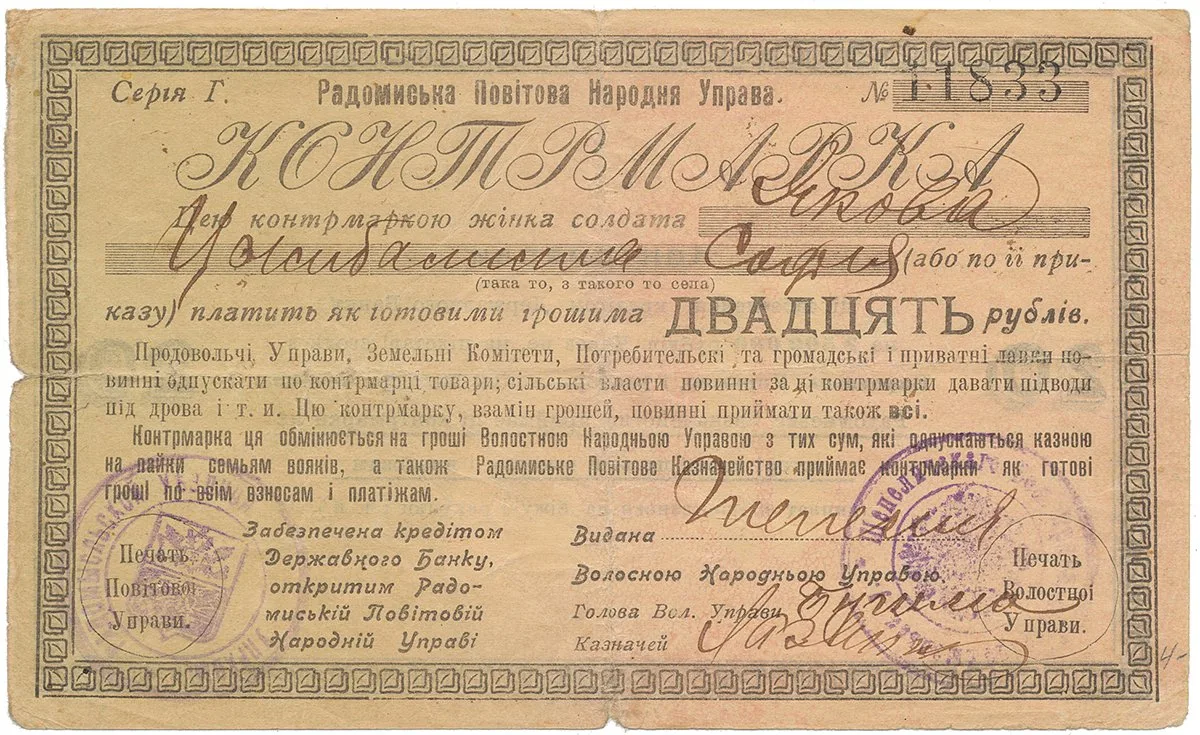 Серія Г. Радомиська Повітова Народня Управа. № 11833
КОНТРМАРКА
Цею контрмаркою жінка солдата Якова
София (або по її при-
(така то, з такого то села)
казу) платить як готовими грошима ДВАДЦЯТЬ рублів.
Продовольчі, Управи, Земельні Комітети, Потребительскі та громадські і приватні лавки по-
винні одпускати по контрмарці товари; сільські власти повинні за ці контрмарки давати підводи
під дрова і т. и. Цю контрмарку, взамін грошей, повинні приймати також всі.
Контрмарка ця обмінюється на гроші Волостною Народньою Управою з тих сум, які одпускаються казною
на пайки семьям вояків, а також Радомиське Повітове Казначейство приймає контрмарки як готові
гроші по всім взносам і платіжам.
Забезпечена кредітом
Державного Банку,
откритим Радо-
миській Повітовій
Народній Управі
Печать
Повітової
Управи.
Видана
Волосною Народньою Управою.
Голова Вол. Управи
Казначей
Печать
Волостної
Управи.